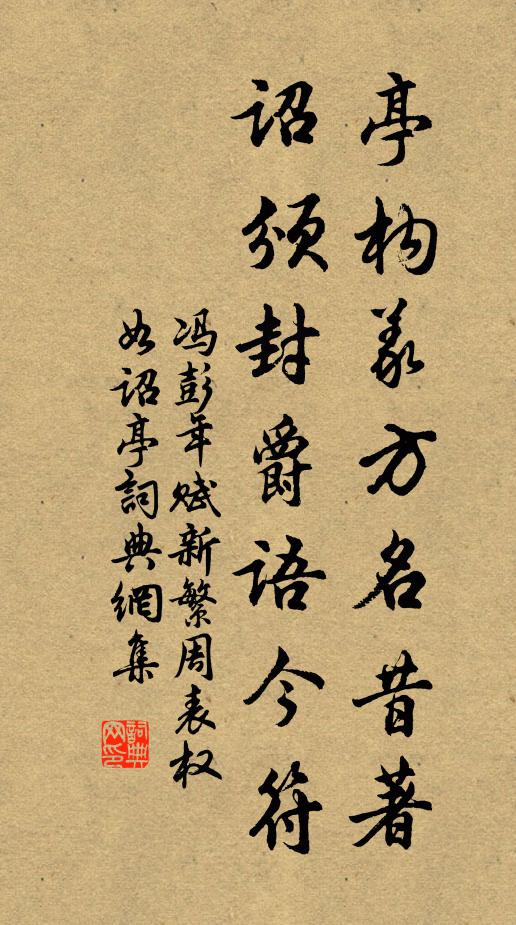 亭构义方名昔著
诏颁封爵语今符
冯彭年赋新繁周表权
如诏亭词典网集
词典网印